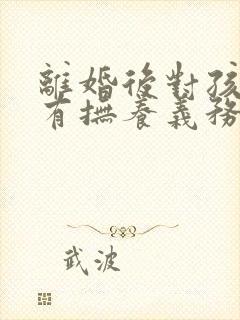 離婚後對孩
有撫養義務
武波